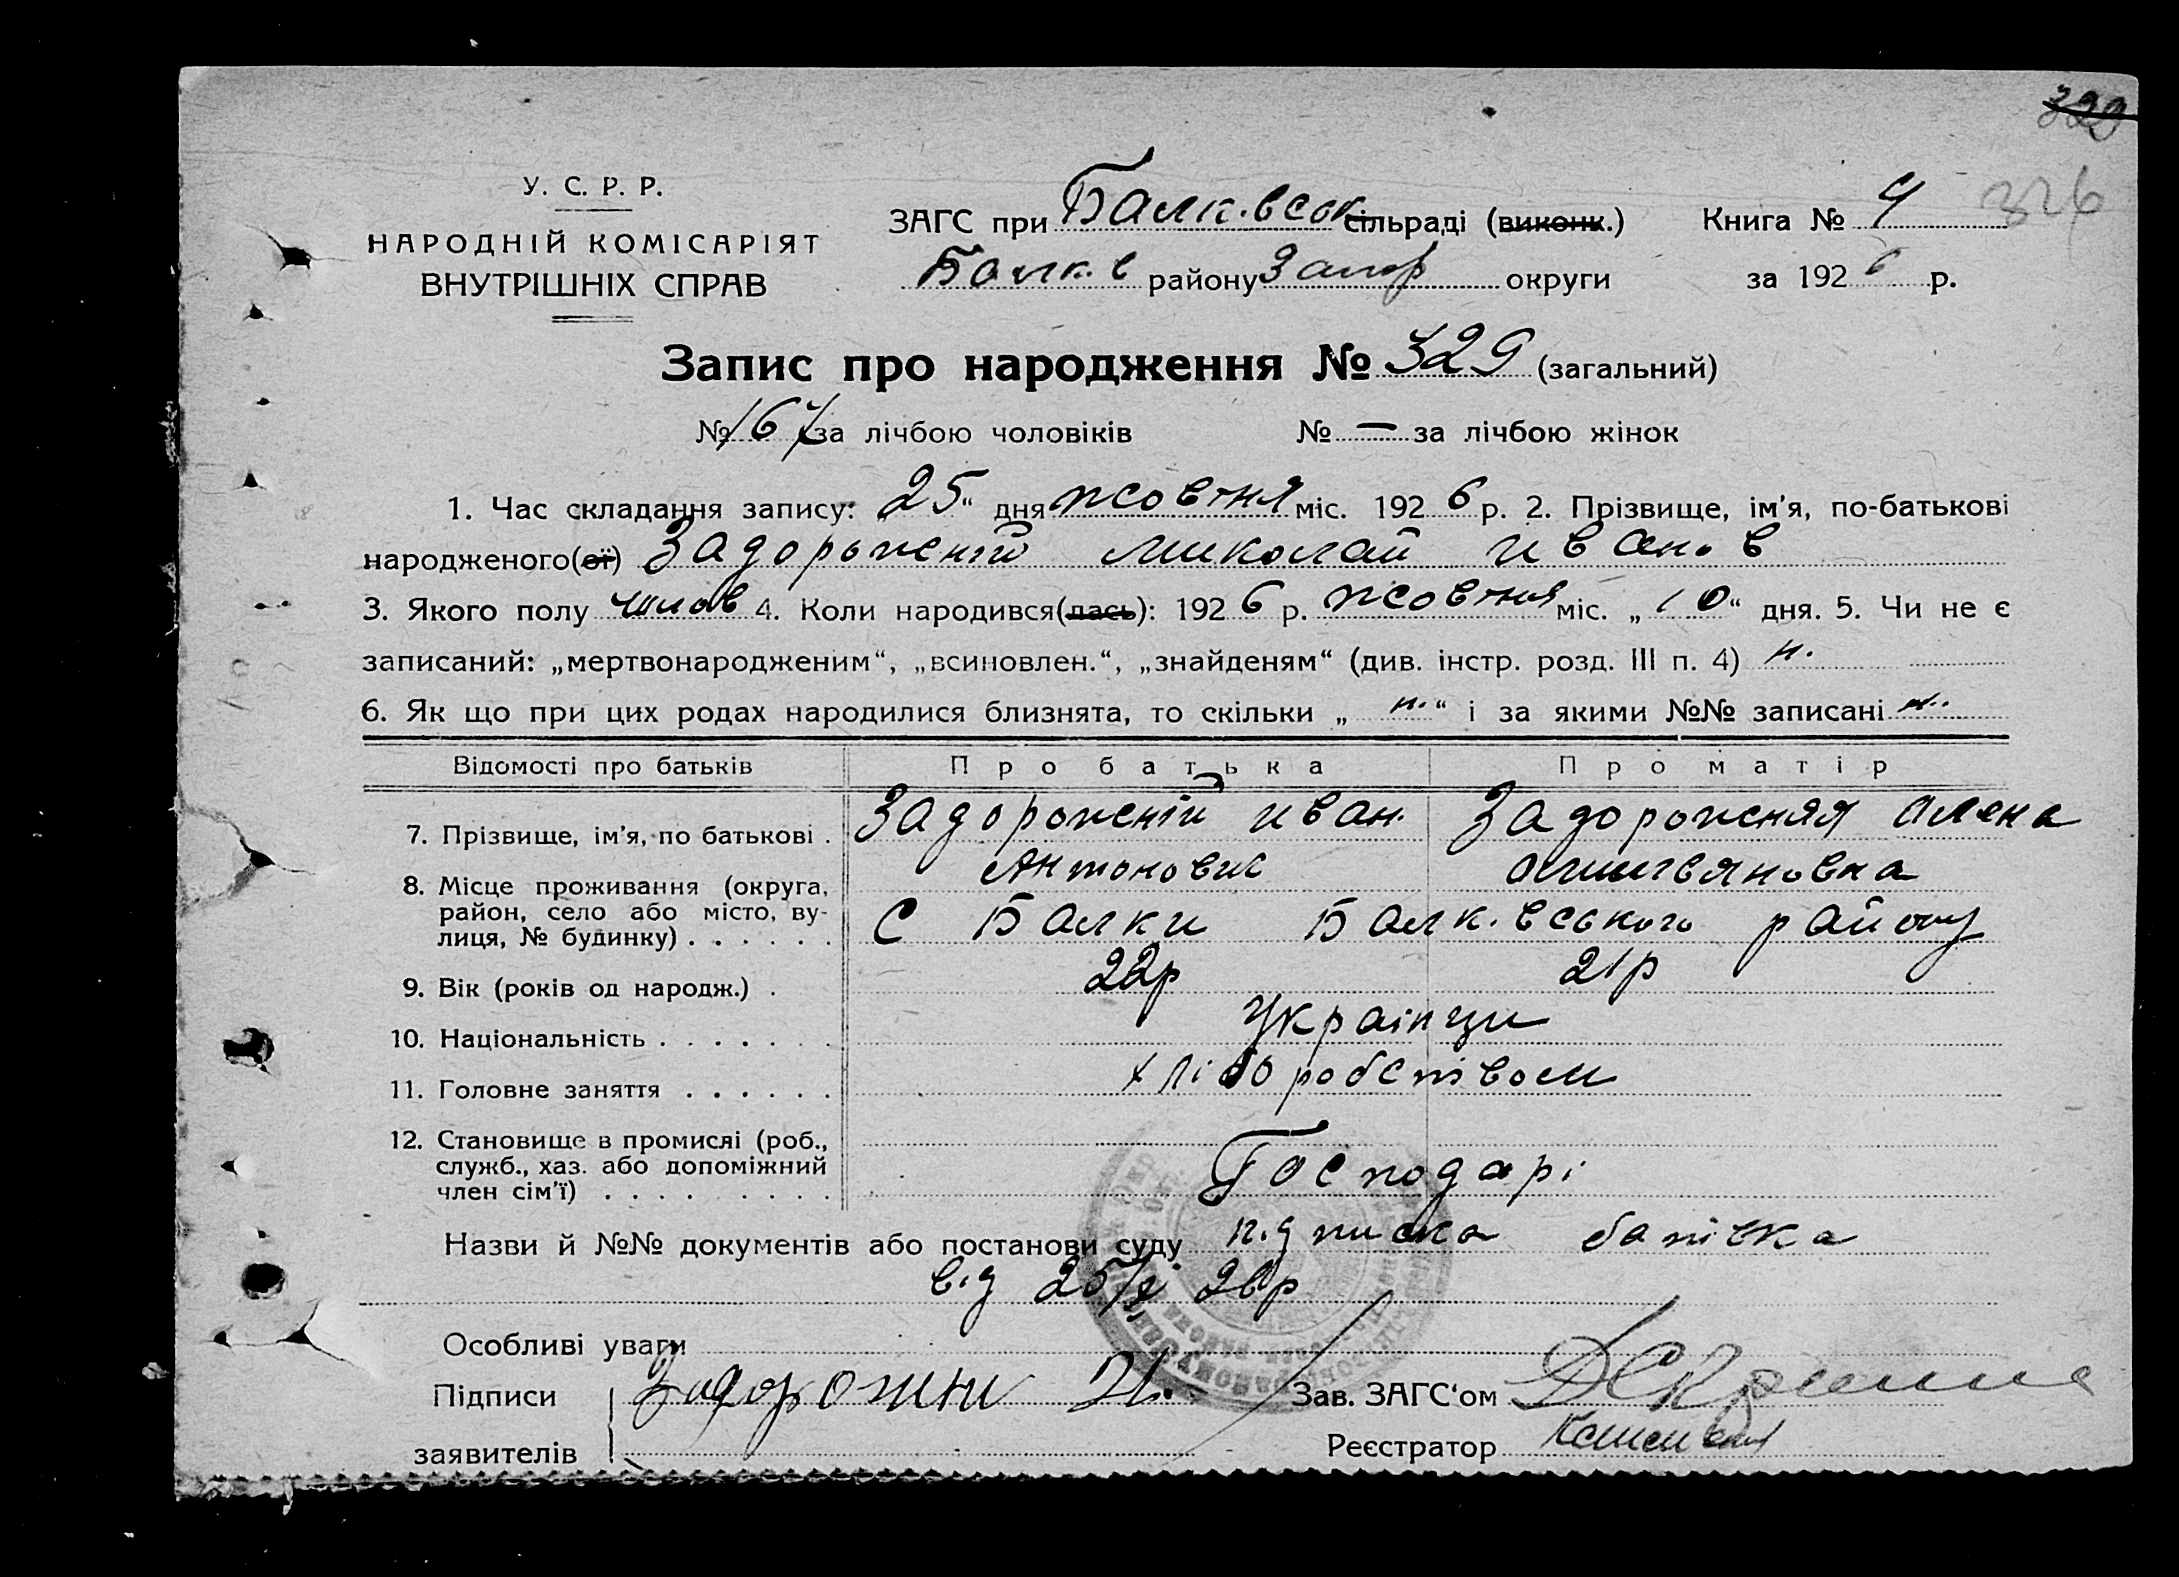 329
326
У. С. Р. Р.
НАРОДНІЙ КОМІСАРІЯТ
ВНУТРІШНІХ СПРАВ
ЗАГС при Балк.вськ. сільраді (виконк.) Книга №
Балк.в району Запор округи за 1926 р.
Запис про народження № 329 (загальний)
№ 167 за лічбою чоловіків № — за лічбою жінок
1. Час складання запису: „25“ дня жовтня міс. 1926 р. 2. Прізвище, ім'я, по-батькові
народженого(ої) Задорожній Миколай Иванов
3. Якого полу чолов 4. Коли народився(лась): 1926 р. жовтня міс. „10“ дня. 5. Чи не є
записаний: „мертвонародженим“, „всиновлен.“, „знайденям“ (див. інстр. розд. III п. 4) н.
6. Як що при цих родах народилися близнята, то скільки „н.“ і за якими №№ записані н.
Відомості про батьків Про батька Про матір
7. Прізвище, ім'я, по батькові . Задорожній Иван. Задорожняя Алена
Антонович
8. Місце проживання (округа,
район, село або місто, ву-
лиця, № будинку) . . . . . . С Балки Балк.вського району
9. Вік (років од народж.) . 22р 21р
10. Національність . . . . . . . Українци
11. Головне заняття . . . . . . хліборобством
12. Становище в промислі (роб.,
служб., хаз. або допоміжний
член сім'ї) . . . . . . . . . Господарі
Назви й №№ документів або постанови суду п.дписка батька
від 25/X 26р
Особливі уваги
Підписи Задорожни И. Зав. ЗАГС'ом
заявителів Реєстратор